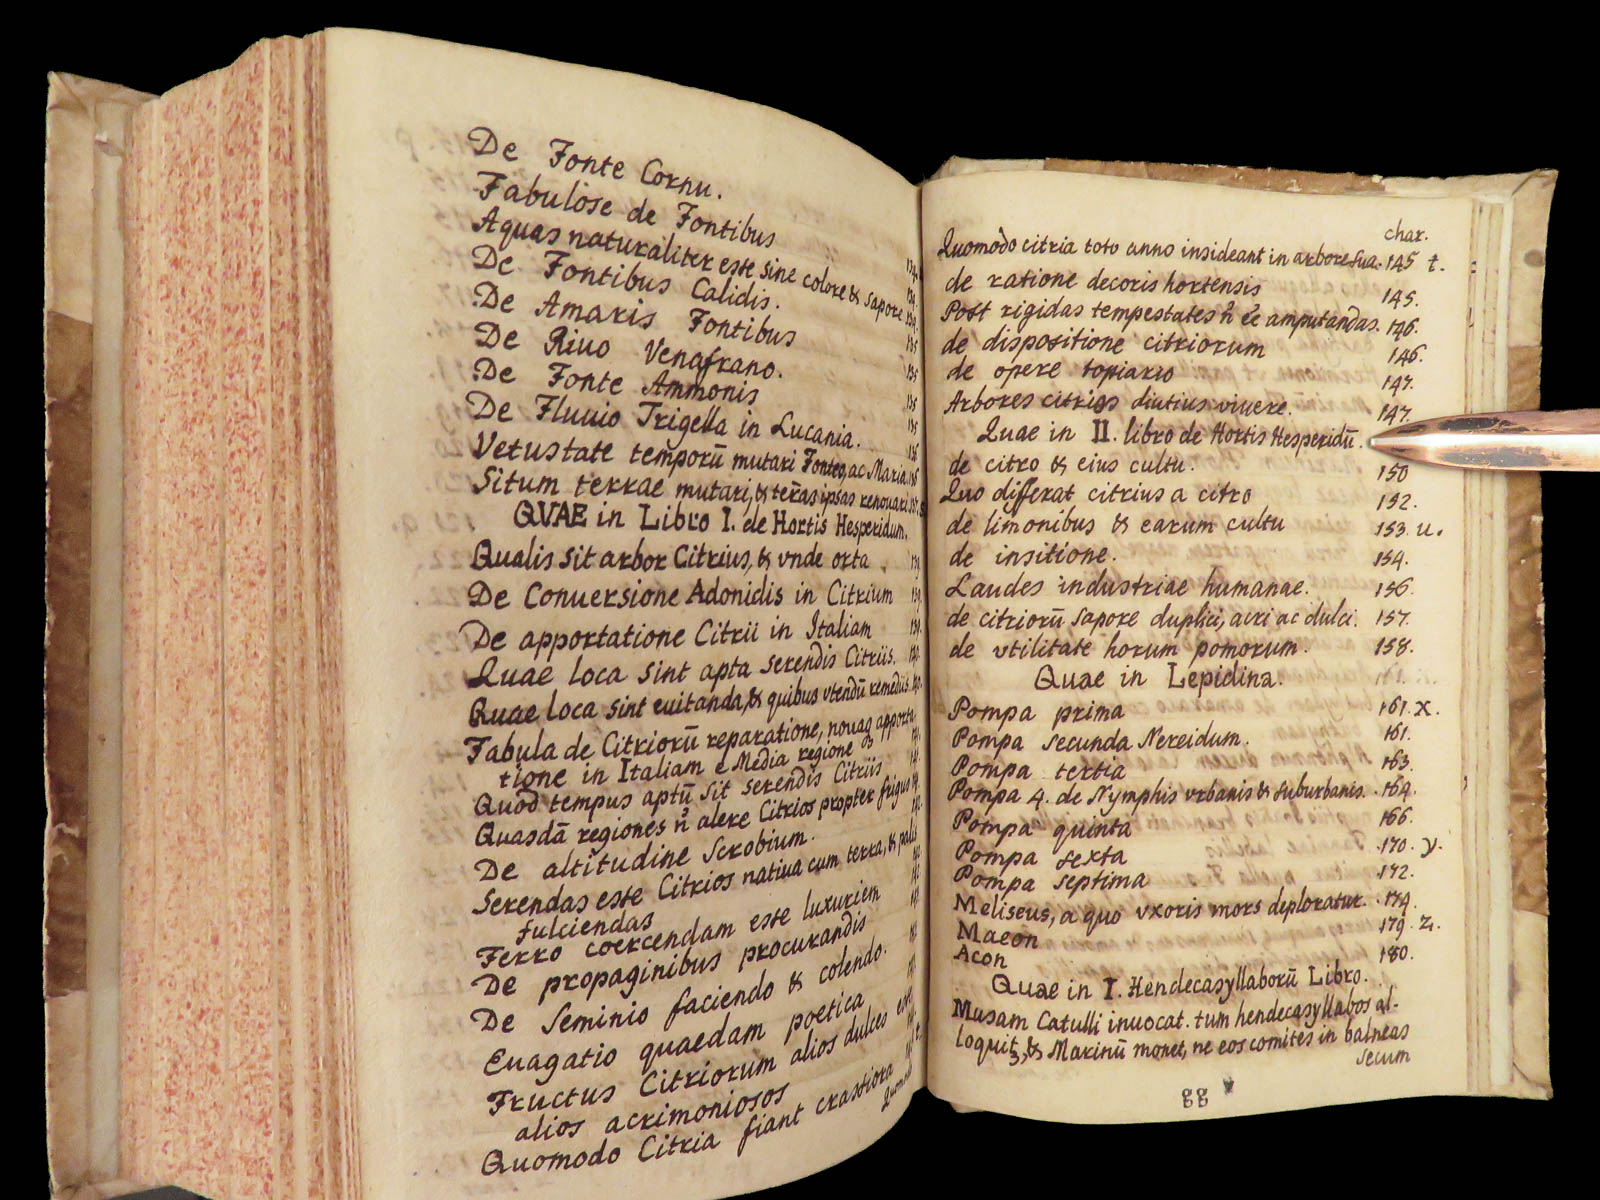 De Fonte Cornu.
Fabulose de Fontibus 134.
Aquas naturaliter esse sine colore & sapore 134.
De Fontibus Calidis. 134.
De Amaris Fontibus 135
De Riuo Venafrano. 135
De Fonte Ammonis 135
De Fluuio Trigella in Lucania. 135
Vetustate temporū mutari Fontes, ac Maria. 136
Situm terrae mutari, & terras ipsas renouari 137. s
QVAE in Libro I. de Hortis Hesperidum.
Qualis sit arbor Citrius, & vnde orta 139
De Conuersione Adonidis in Citrium 139.
De apportatione Citrii in Italiam 139.
Quae loca sint apta serendis Citriis. 140.
Quae loca sint euitanda, & quibus vtendū remediis 140.
Fabula de Citriorū reparatione, nouaq apporta-
tione in Italiam e Media regione 141.
Quod tempus aptū sit serendis Citriis 141.
Quasdā regiones n̄ alere Citrios propter frigus 141.
De altitudine scrobium. 142.
Serendas esse Citrios natiua cum terra, & palis
fulciendas 142.
Ferro coercendam esse luxuriem
De propaginibus procurandis
De Seminio faciendo & colendo.
Euagatio quaedam poetica
Fructus Citriorum alios dulces esse
alios acrimoniosos t.
Quomodo Citria fiant crastiora
Quomodo
char.
Quomodo citria toto anno insideant in arbore sua. 145 t.
de ratione decoris hortensis 145.
Post rigidas tempestates n̄ eē amputandas. 146.
de dispositione citriorum 146.
de opere topiario 147.
Arbores citrios diutius viuere. 147.
Quae in II. libro de Hortis Hesperidū.
de citro & eius cultu. 150
Quo differat citrius a citro 152.
de limonibus & earum cultu 153. u.
de insitione. 154.
Laudes industriae humanae. 156.
de citriorū sapore duplici, acri ac dulci. 157.
de vtilitate horum pomorum. 158.
Quae in Lepidina.
Pompa prima 161. x.
Pompa secunda Nereidum. 161.
Pompa tertia 163.
Pompa 4. de Nymphis vrbanis & suburbanis. 164.
Pompa quinta 166.
Pompa sexta 170. y.
Pompa septima 172.
Meliseus, a quo vxoris mors deploratur. 174.
Maeon 179. z.
Acon 180.
Quae in I. Hendecasyllaborū Libro.
Musam Catulli inuocat. tum hendecasyllabos al-
loquit, & Marinū monet, ne eos comites in balneas
secum
gg